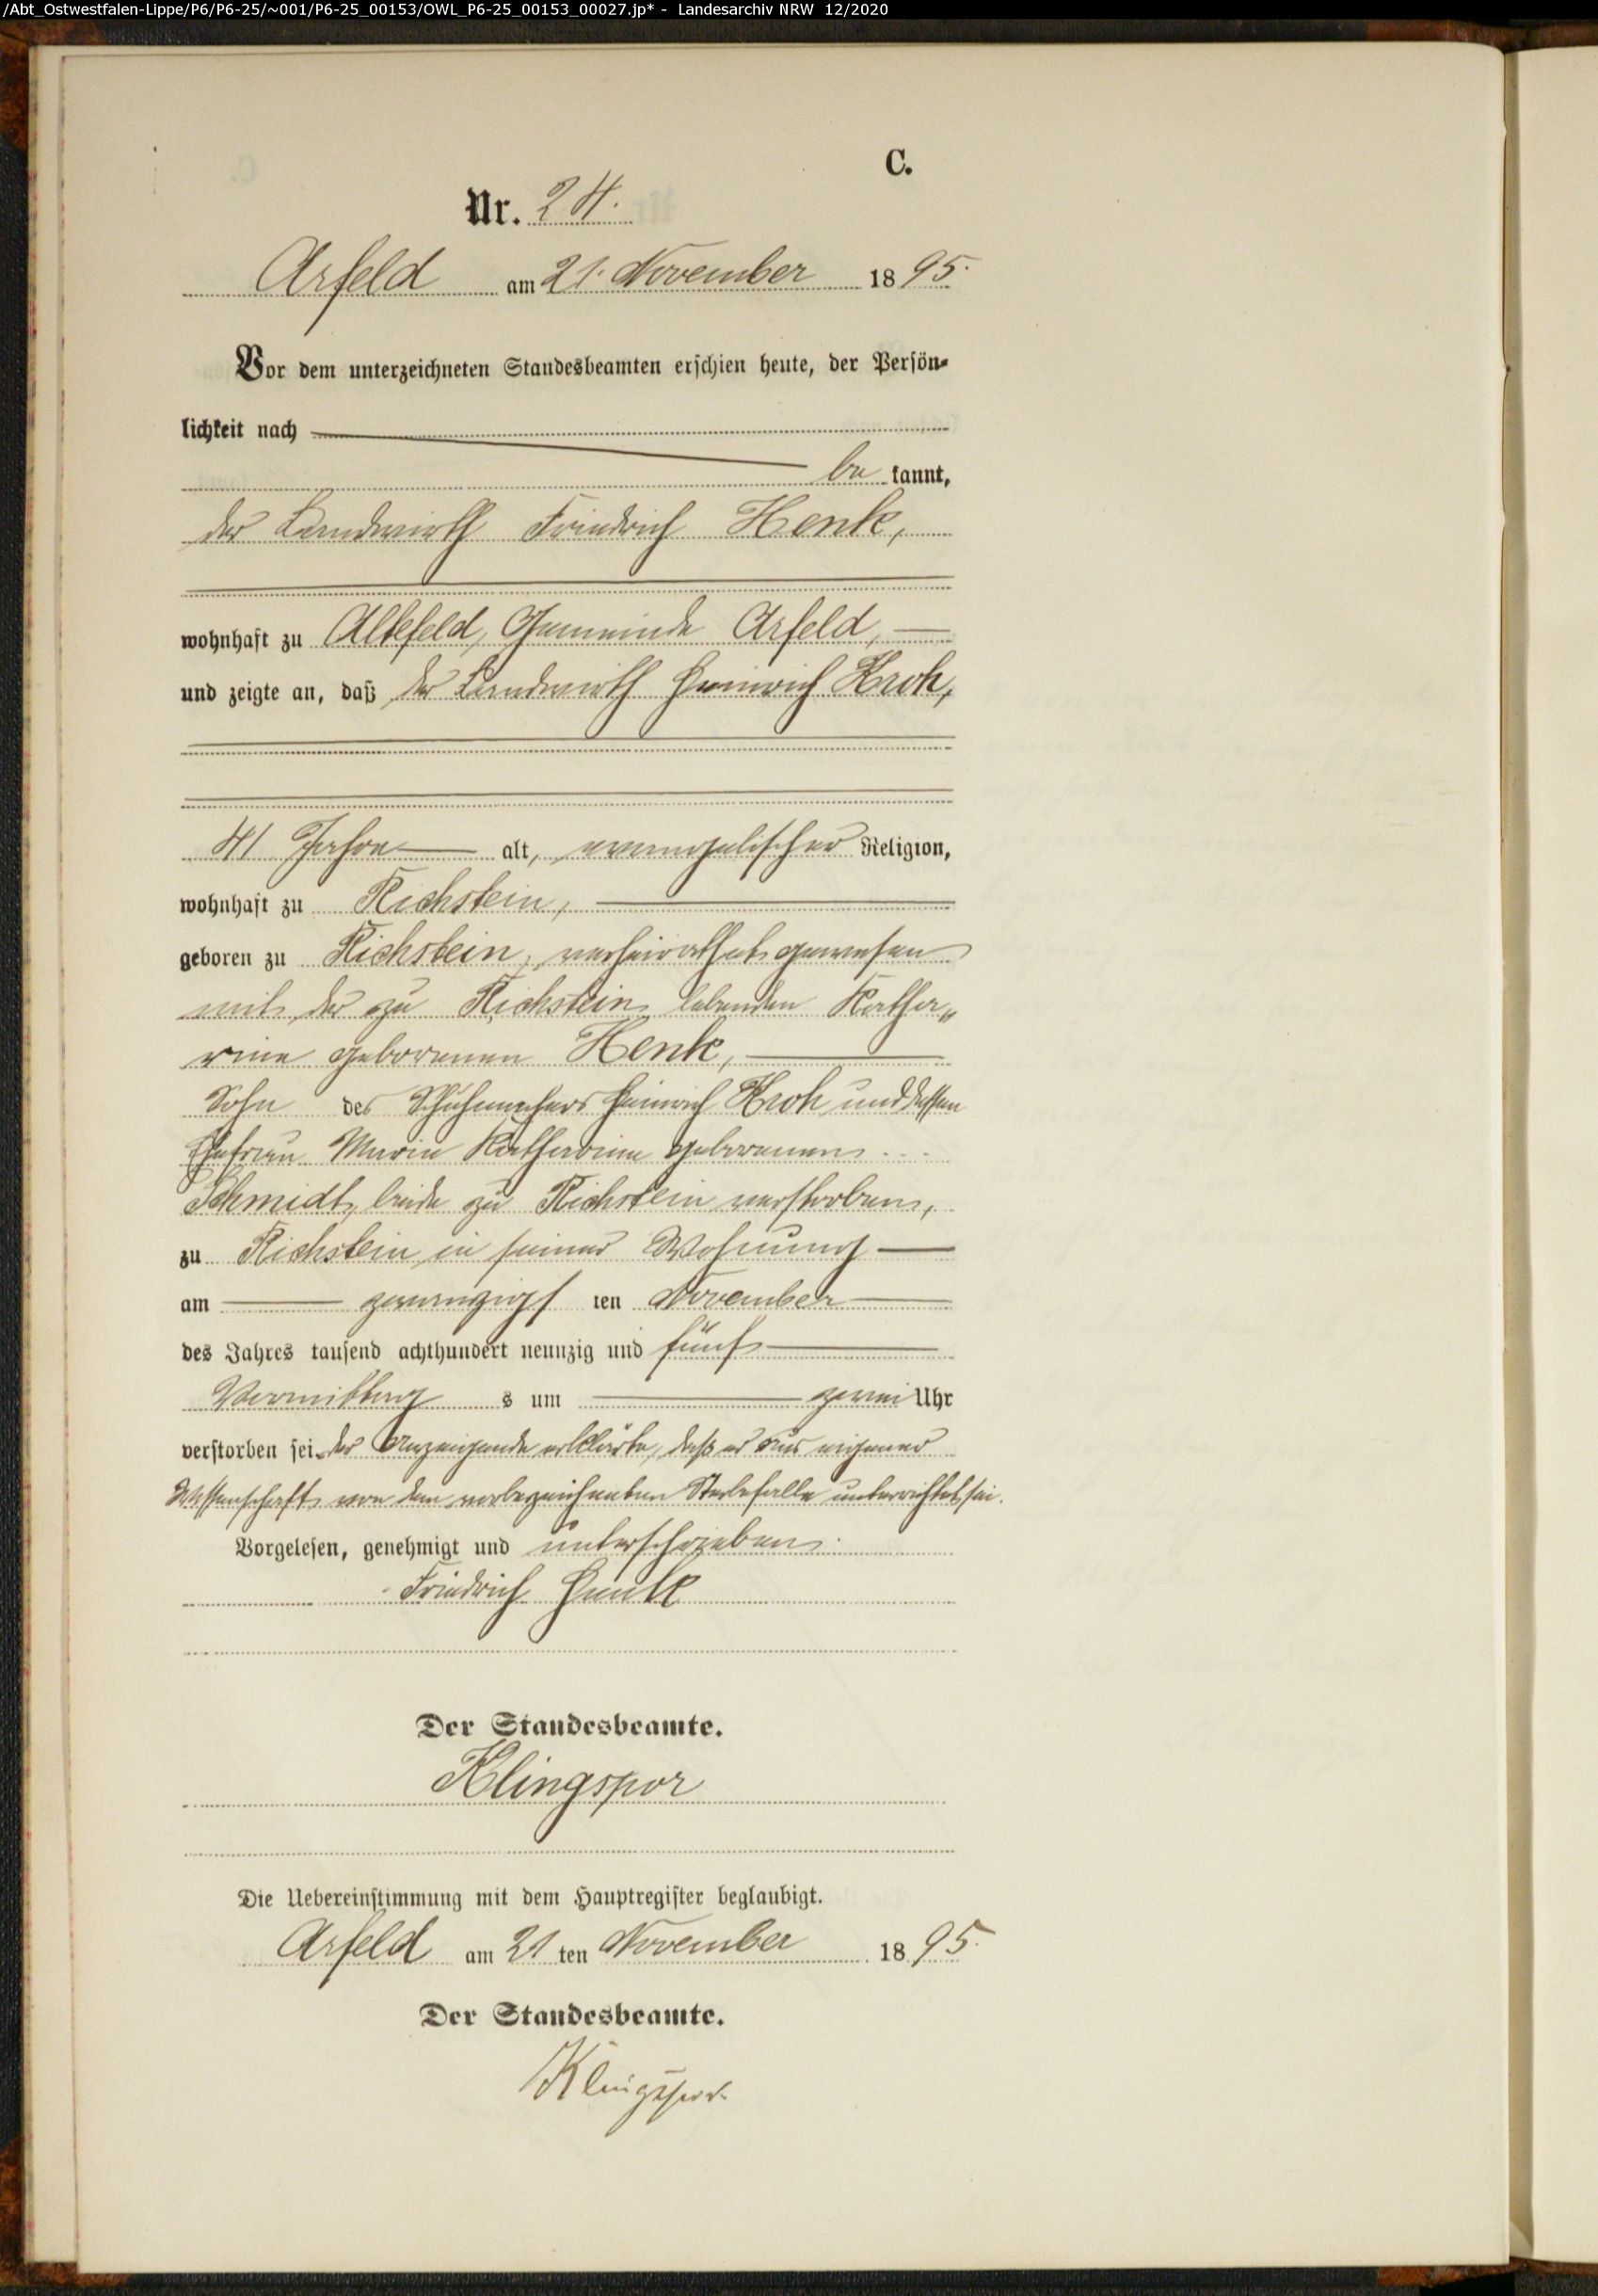 /Abt_Ostwestfalen-Lippe/P6/P6-25/~001/P6-25_00153/OWL_P6-25_00153_00027.jp* - Landesarchiv NRW 12/2020
C.
Nr. 24.
Arfeld am 21. November 1895.
Vor dem unterzeichneten Standesbeamten erschien heute, der Persön-
lichkeit nach
be kannt,
der Landwirth Friedrich Henk,
wohnhaft zu Altefeld, Gemeinde Arfeld,
und zeigte an, daß der Landwirth Heinrich Kroh,
41 Jahre alt, evangelischer Religion,
wohnhaft zu Richstein,
geboren zu Richstein, verheirathet gewesen
mit der zu Richstein lebenden Katha„
rine geborenen Henk,
Sohn des Schuhmachers Heinrich Kroh und dessen
Ehefrau Marie Katharine geborenen
Schmidt, beide zu Richstein verstorben,
zu Richstein in seiner Wohnung
am zwanzigs ten November
des Jahres tausend achthundert neunzig und fünf
Vormittag s um zwei Uhr
verstorben sei. der Anzeigende erklärte, daß er aus eigener
Wissenschaft von dem vorbezeichneten Sterbefalle unterrichtet sei.
Vorgelesen, genehmigt und unterschrieben.
Friedrich Henk
Der Standesbeamte.
Klingspor
Die Uebereinstimmung mit dem Hauptregister beglaubigt.
Arfeld am 21 ten November 1895.
Der Standesbeamte.
Klingspor